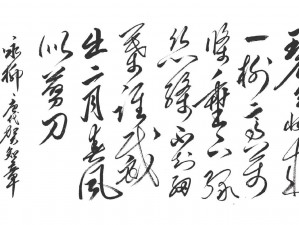 碧玉妆成
一树高万
条垂下绿
丝绦不知细
叶谁裁
出二月春风
似剪刀
咏柳 唐代贺知章